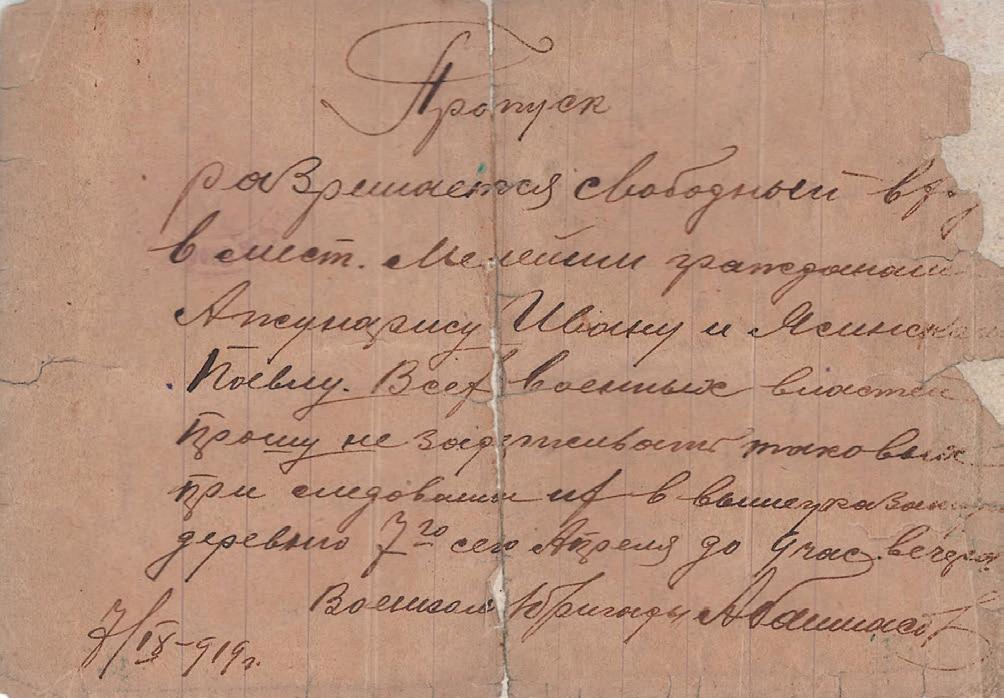 Пропуск
разрешается свободный
в мест. гражданам
Ажунарису Ивану и
Павлу. Всех военных властей
прошу не задерживать таковых
при следовании их в
деревню 7го сего Апреля до час. вечера
Военком бригады
7/IX-919г.